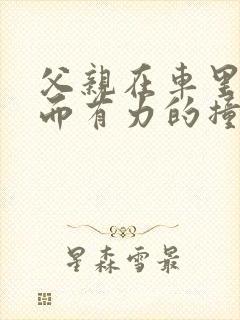 父親在車里
而有力的撞
星森雪最